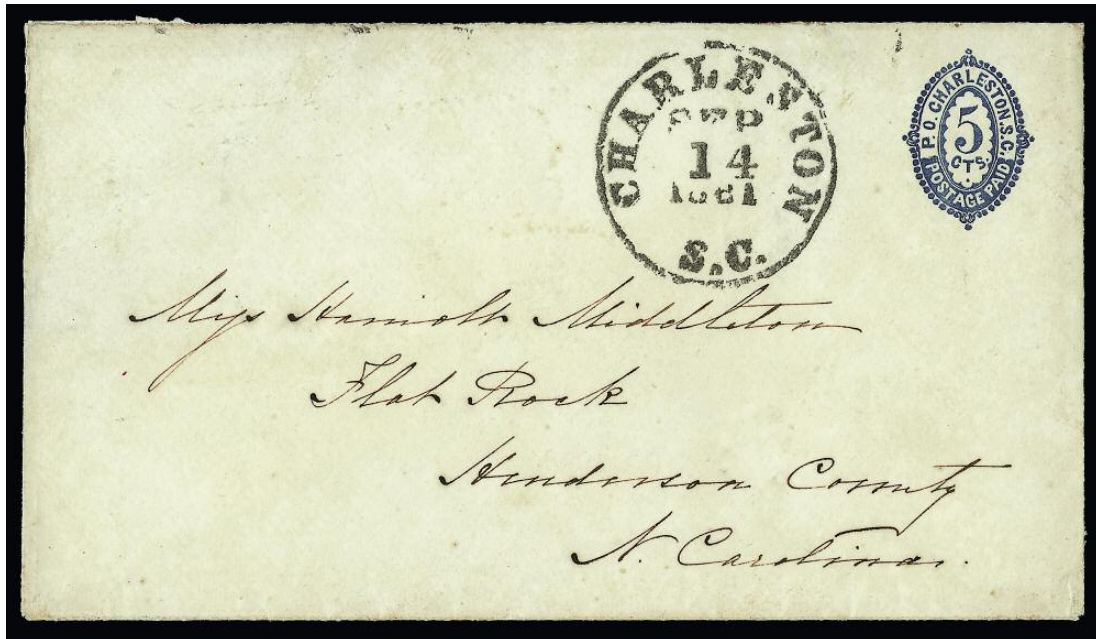 CHARLESTON
SEP
14
1861
S.C.
P.O. CHARLESTON. S.C.
5
CTS.
POSTAGE PAID
Miss Harriott Middleton
Flat Rock
Henderson County
N. Carolina.